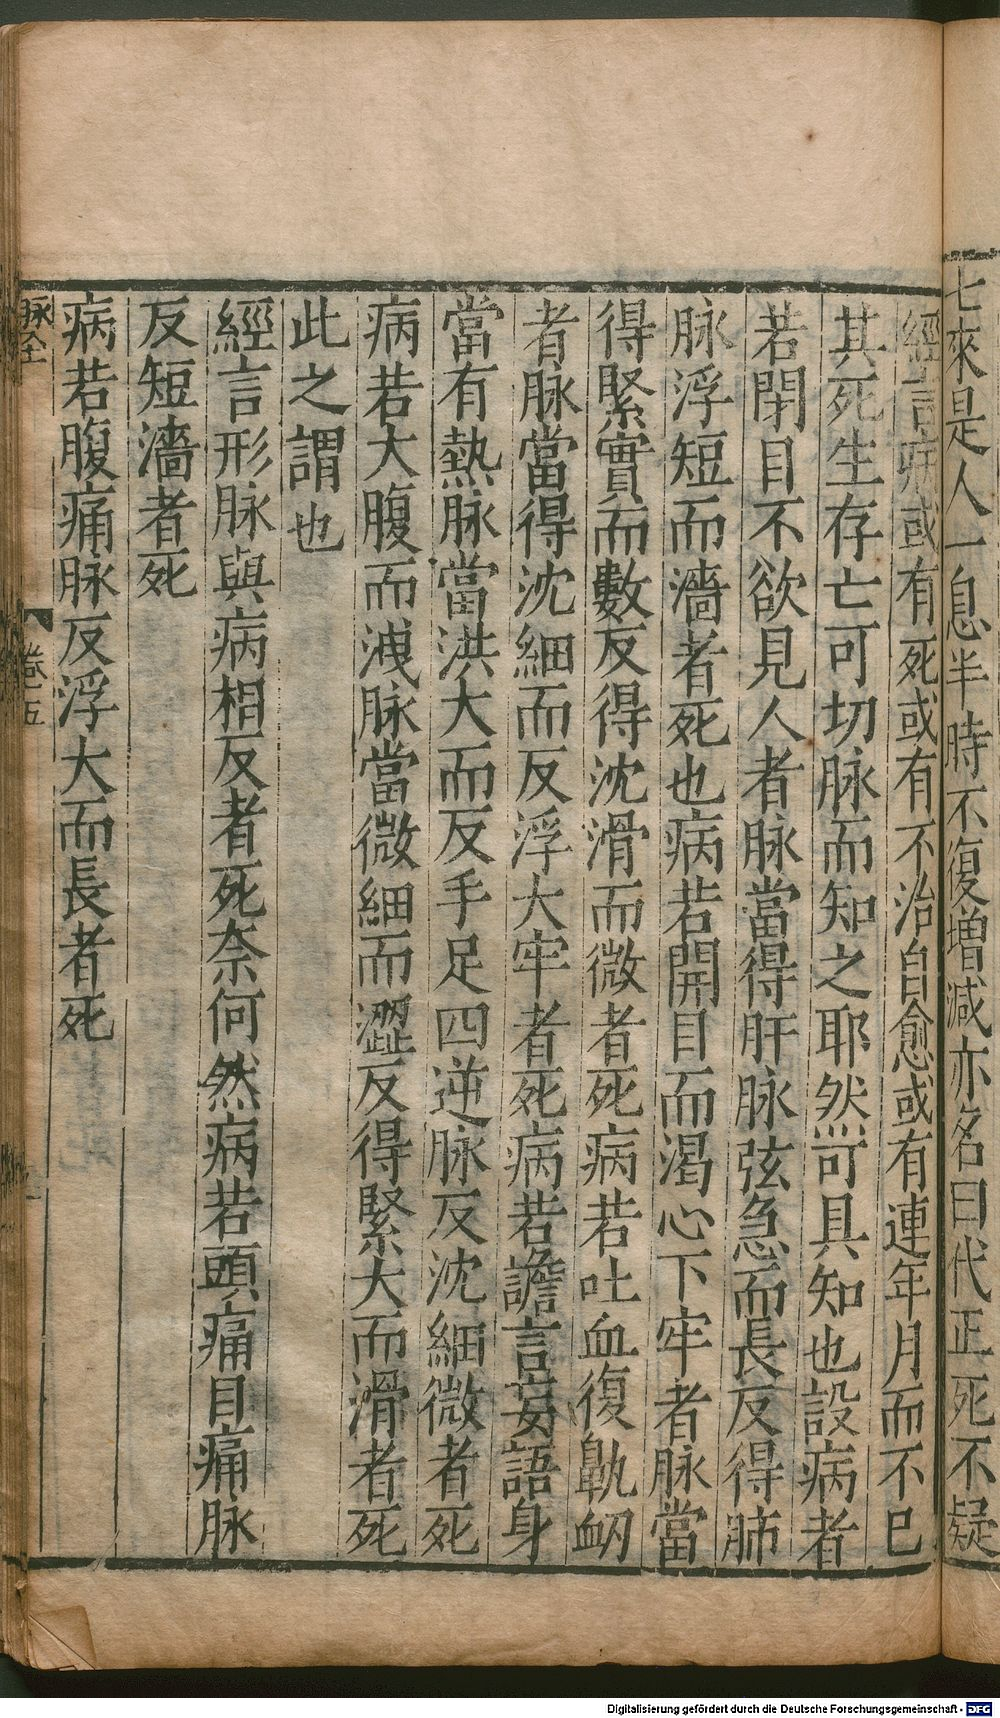 七來是人一息半時不復增減亦名曰代正死不疑
經言病或有死或有不治自愈或有連年月而不已
其死生存亡可切脉而知之耶然可具知也設病者
若閉目不欲見人者脉當得肝脉弦急而長反得肺
脉浮短而濇者死也病若開目而渴心下牢者脉當
得緊實而數反得沈滑而微者死病若吐血復鼽衂
者脉當得沈細而反浮大牢者死病若譫言妄語身
當有熱脉當洪大而反手足四逆脉反沈細微者死
病若大腹而洩脉當微細而澀反得緊大而滑者死
此之謂也
經言形脉與病相反者死奈何然病若頭痛目痛脉
反短濇者死
病若腹痛脉反浮大而長者死
脉全 卷五
Digitalisierung gefördert durch die Deutsche Forschungsgemeinschaft - DFG